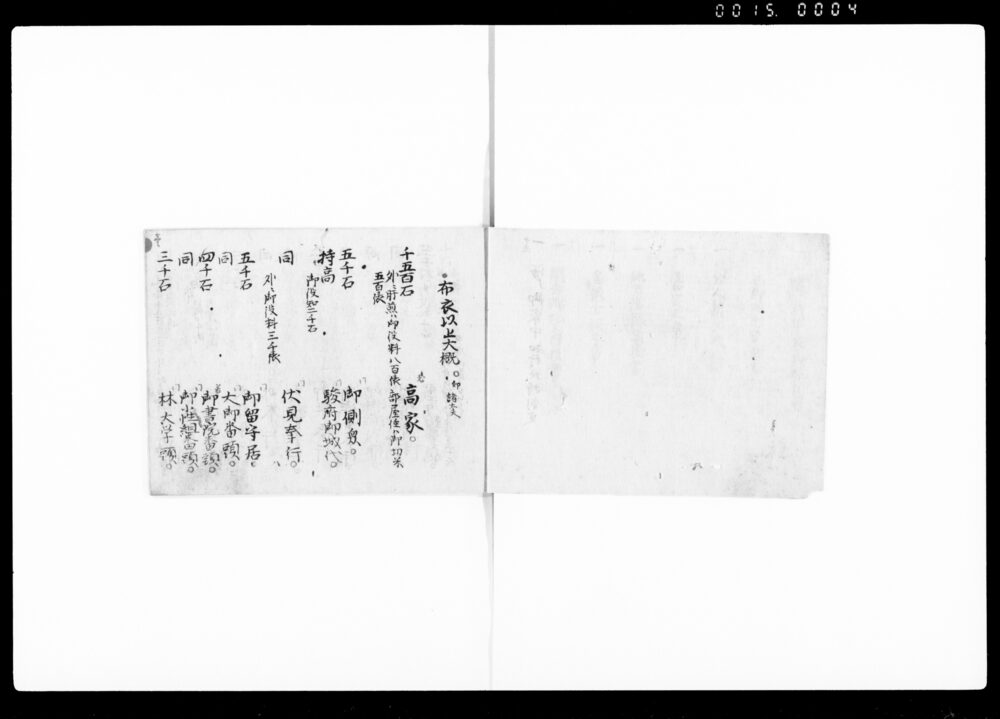 0015. 0004
布衣以上大概。
千五百石 高家。
外ニ肝煎ハ御役料八百俵 部屋住ハ御切米
五百俵
五千石 御側衆。
持高 駿府御城代。
御役知二千石
同 伏見奉行。
外ニ御役料三千俵
五千石 御留守居。
同 大御番頭。
四千石 御書院番頭。
同 御小性組番頭。
三千石 林大学頭。